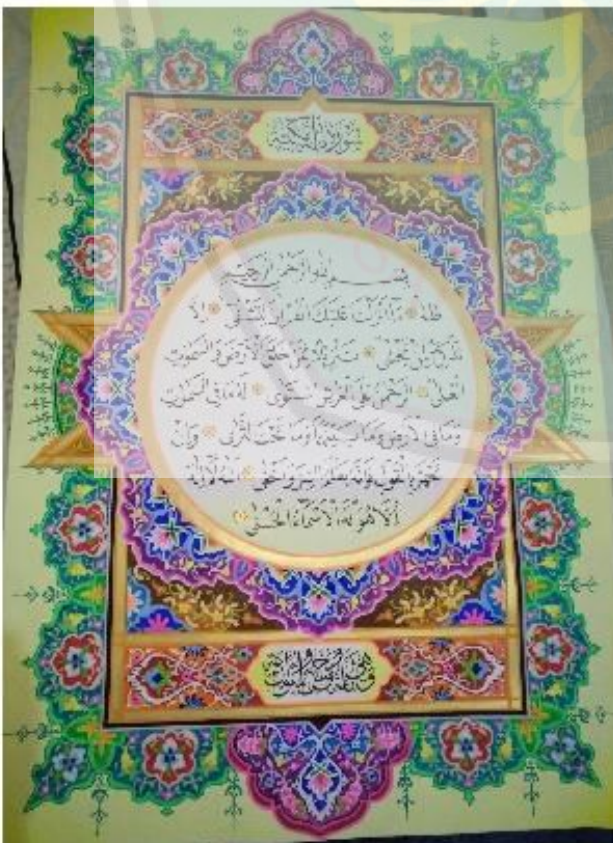 سورة طه مكية
بسم الله الرحمن الرحيم
طه ما أنزلنا عليك القرآن لتشقى إلا
تذكرة لمن يخشى تنزيلا ممن خلق الأرض والسموات
العلى الرحمن على العرش استوى له ما في السموات
وما في الأرض وما بينهما وما تحت الثرى وإن
تجهر بالقول فإنه يعلم السر وأخفى الله لا إله
إلا هو له الأسماء الحسنى
وهي مائة وخمس وثلاثون آية